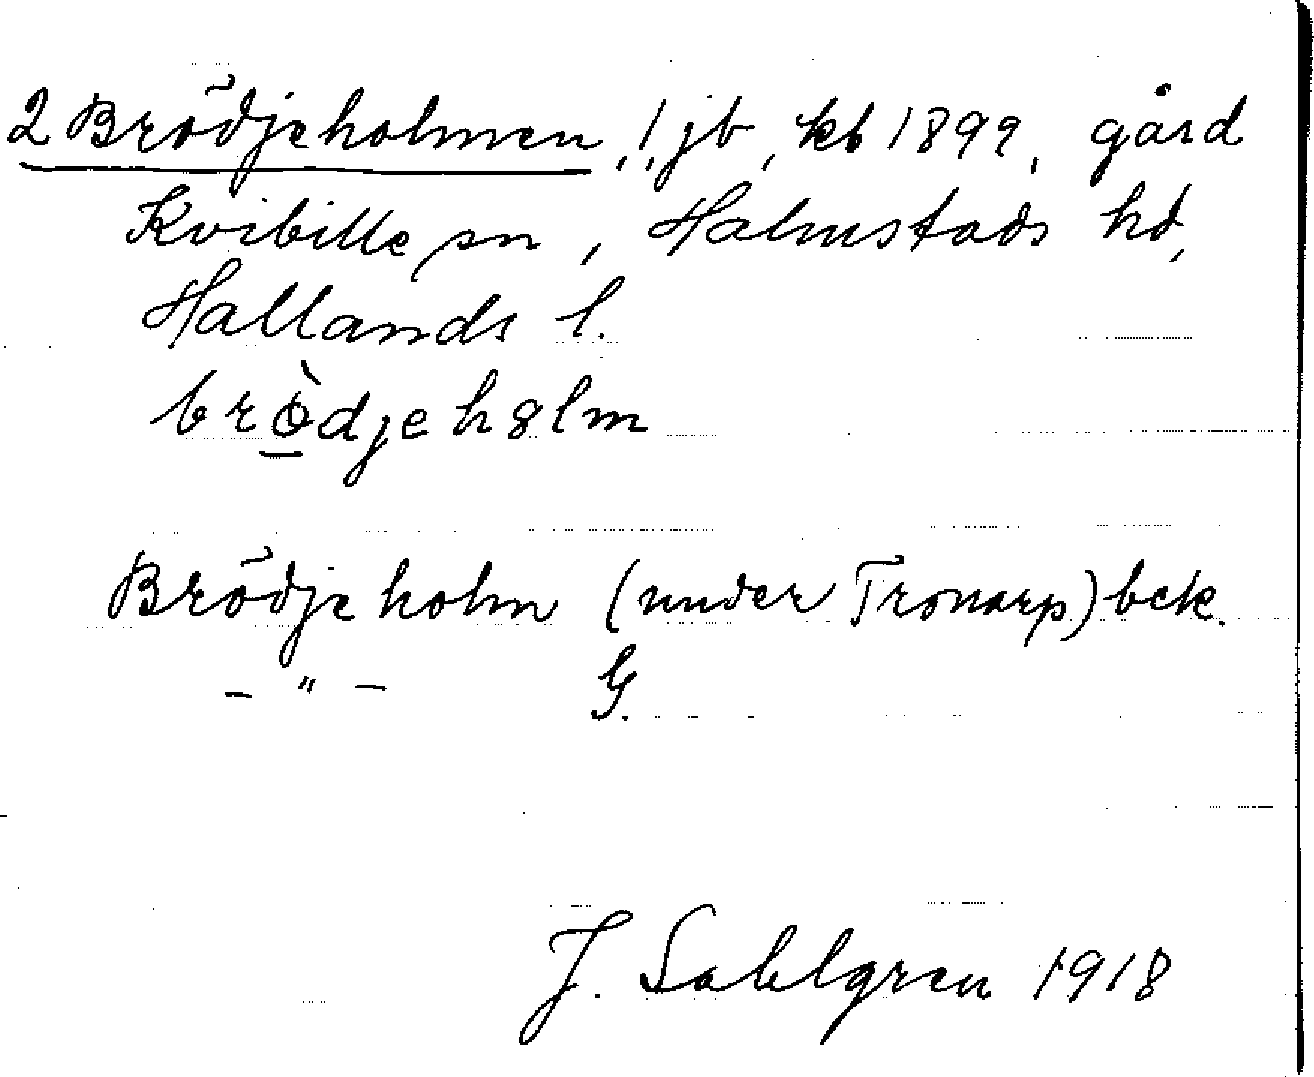 2 Brödjeholmen, !, jb, kb 1899, gård
Kvibille sn, Halmstads hd,
Hallands l.
brò̱djeh8lm
Brödjeholm (under Tronarp) bek.
– " – G.
J. Sahlgren 1918